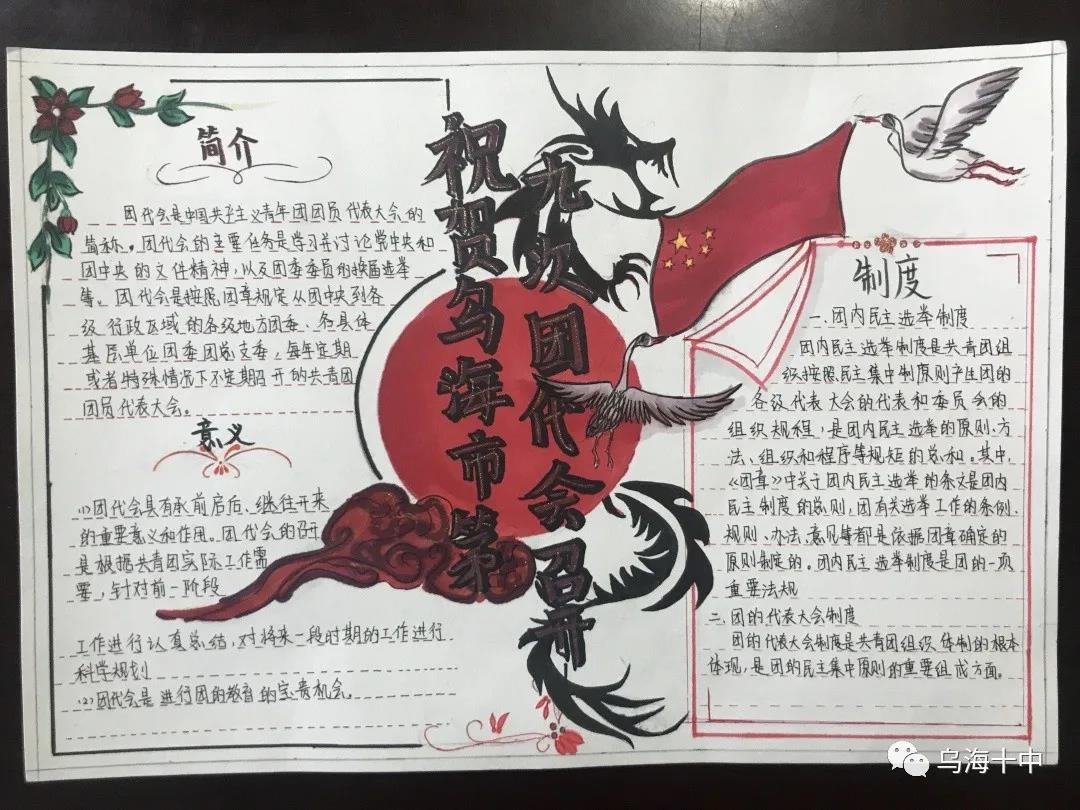 祝贺乌海市第
九次团代会召开
简介
团代会是中国共产主义青年团团员代表大会的
简称。团代会的主要任务是学习并讨论党中央和
团中央的文件精神,以及团委委员的换届选举
等。团代会是按照团章规定从团中央到各
级行政区域的各级地方团委、各具体
基层单位团委团总支委,每年定期
或者特殊情况下不定期召开的共青团
团员代表大会。
意义
(1)团代会具有承前启后、继往开来
的重要意义和作用。团代会的召开
是根据共青团实际工作需
要,针对前一阶段
工作进行认真总结,对将来一段时期的工作进行
科学规划
(2)团代会是进行团的教育的宝贵机会。
制度
一.团内民主选举制度
团内民主选举制度是共青团组
织按照民主集中制原则产生团的
各级代表大会的代表和委员会的
组织规程,是团内民主选举的原则、方
法、组织和程序等规矩的总和。其中,
《团章》中关于团内民主选举的条文是团内
民主制度的总则,团有关选举工作的条例、
规则、办法、意见等都是依据团章确定的
原则制定的。团内民主选举制度是团的一项
重要法规
二.团的代表大会制度
团的代表大会制度是共青团组织体制的根本
体现,是团的民主集中原则的重要组成方面。
乌海十中